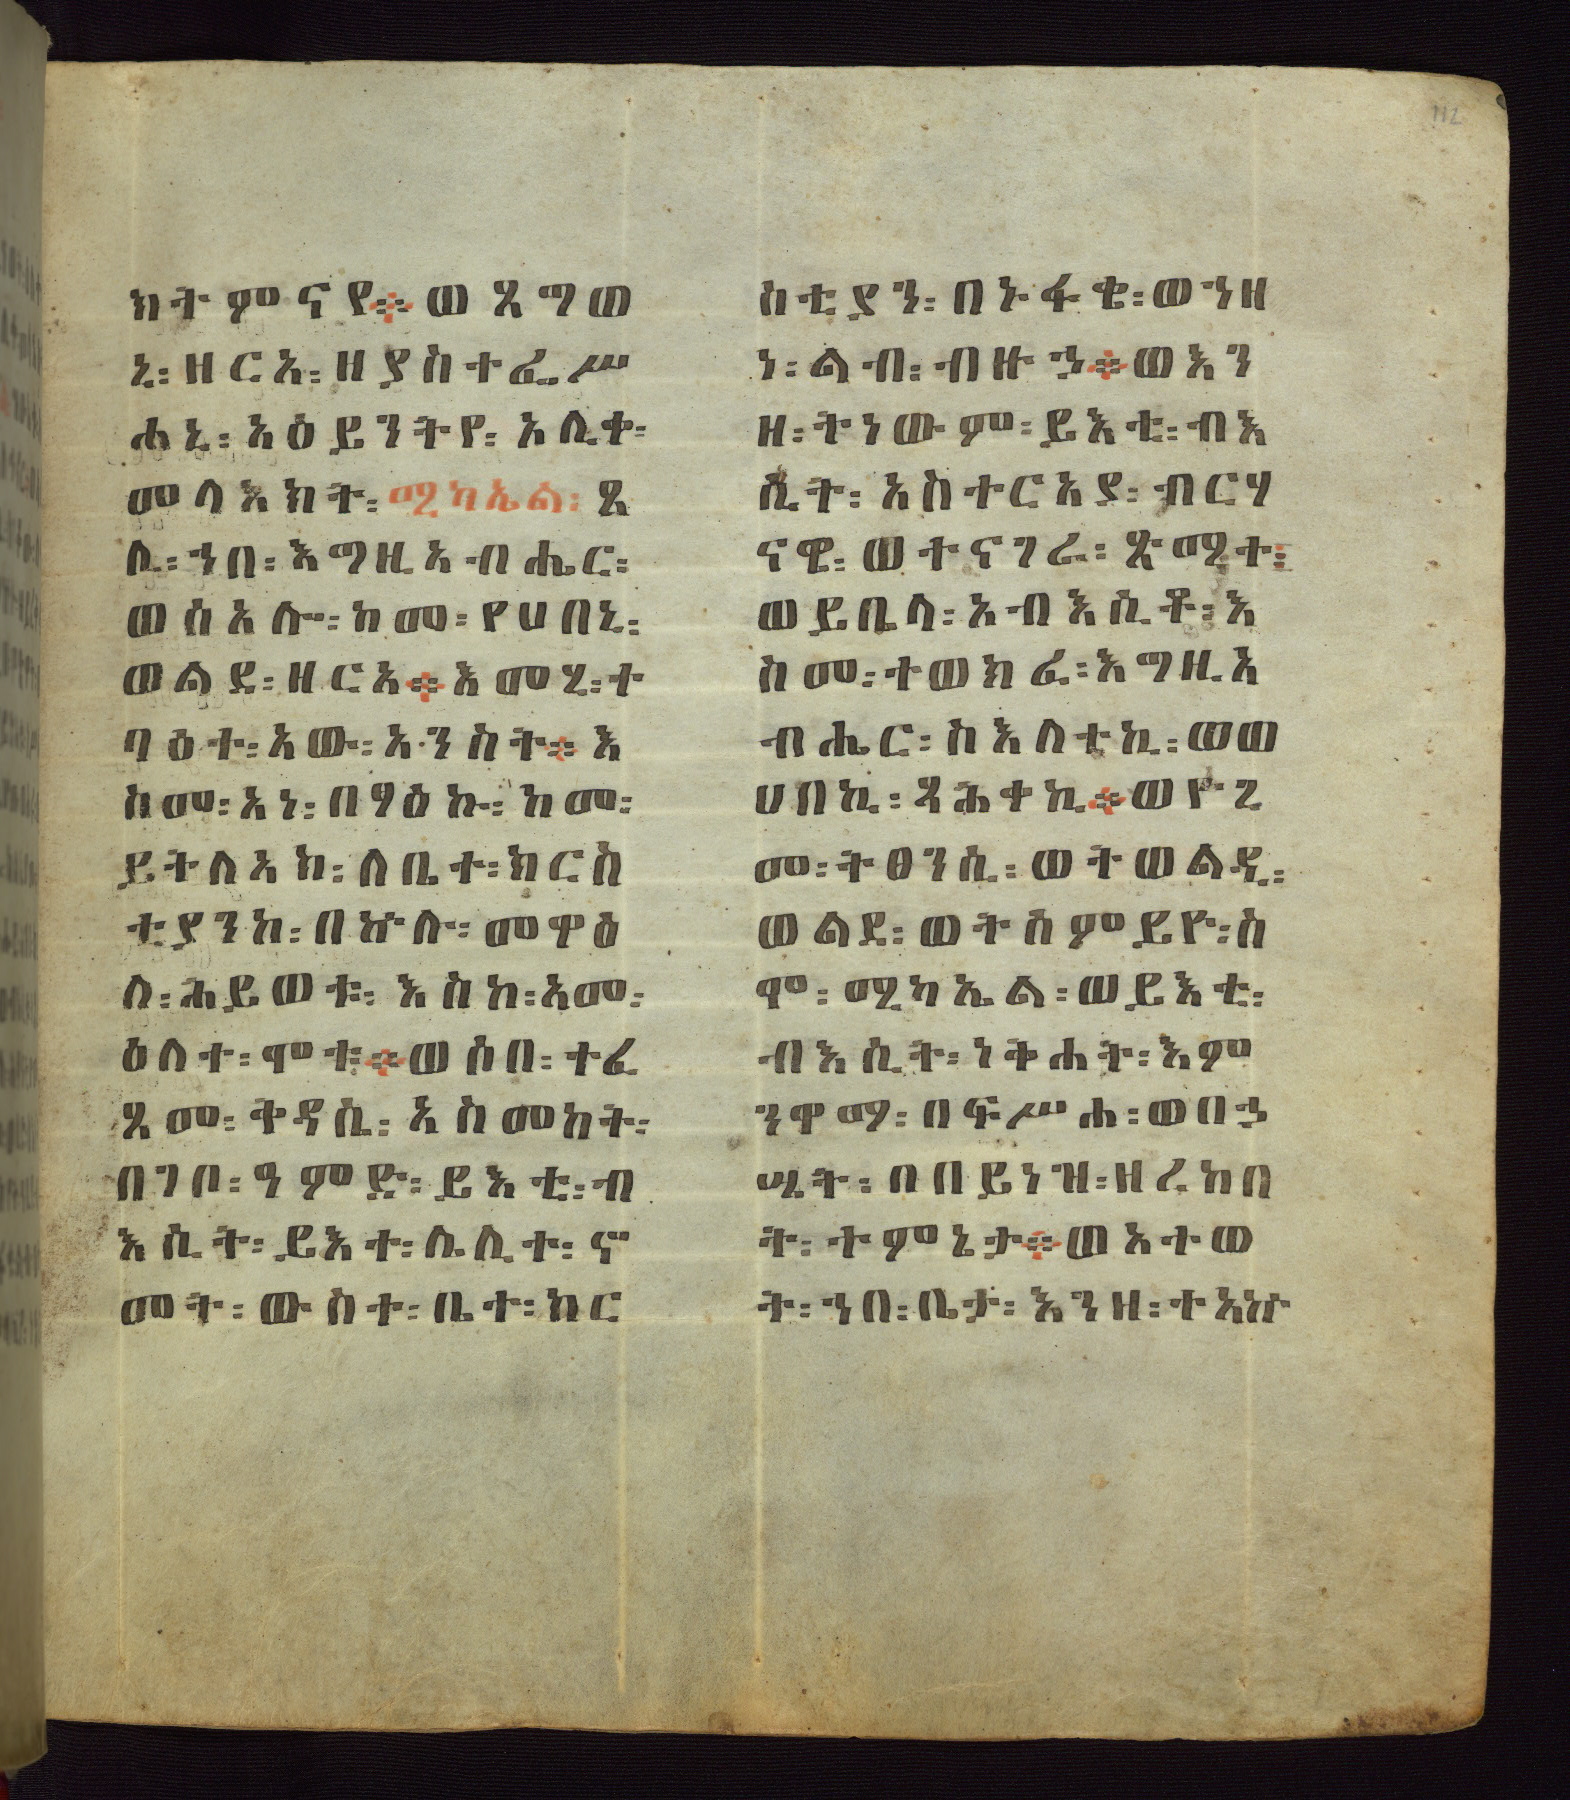 112
ክትምናየ፨ወጸግወ
ኒ፡ዘርአ፡ዘያስተፌሥ
ሐኒ፡አዕይንትየ፡አሊቀ፡
መላእክት፡ሚካኤል፡ጸ
ሊ፡ኀበ፡እግዚአብሔር፡
ወሰአሎ፡ከመ፡የሀበኒ፡
ወልደ፡ዘርአ፨እመሂ፡ተ
ባዕተ፡አው፡አንስት፨እ
ስመ፡አነ፡በፃዕኩ፡ከመ፡
ይትለአክ፡ለቤተ፡ክርስ
ቲያንከ፡በኵሉ፡መዋዕ
ለ፡ሕይወቱ፡እስከ፡አመ፡
ዕለተ፡ሞቱ፨ወሶበ፡ተፈ
ጸመ፡ቅዳሴ፡አስመከት፡
በገቦ፡ዓምድ፡ይእቲ፡ብ
እሲት፡ይእተ፡ሌሊተ፡ኖ
መት፡ውስተ፡ቤተ፡ክር
ስቲያን፡በኑፋቄ፡ወኀዘ
ነ፡ልብ፡ብዙኃ፨ወእን
ዘ፡ትነውም፡ይእቲ፡ብእ
ሲት፡አስተርአያ፡ብርሃ
ናዊ፡ወተናገራ፡ጽሚተ፡
ወይቤላ፡አብእሲቶ፡እ
ስመ፡ተወክፈ፡እግዚአ
ብሔር፡ስእለተኪ፡ወወ
ሀበኪ፡ጻሕቀኪ፨ወዮጊ
መ፡ትፀንሲ፡ወትወልዲ፡
ወልደ፡ወትሰምይዮ፡ስ
ሞ፡ሚካኤል፡ወይእቲ፡
ብእሲት፡ነቅሐት፡እም
ንዋማ፡በፍሥሐ፡ወበኃ
ሤት፡በበይነዝ፡ዘረከበ
ት፡ተምኔታ፨ወአተወ
ት፡ኀበ፡ቤታ፡እንዘ፡ተአኵ